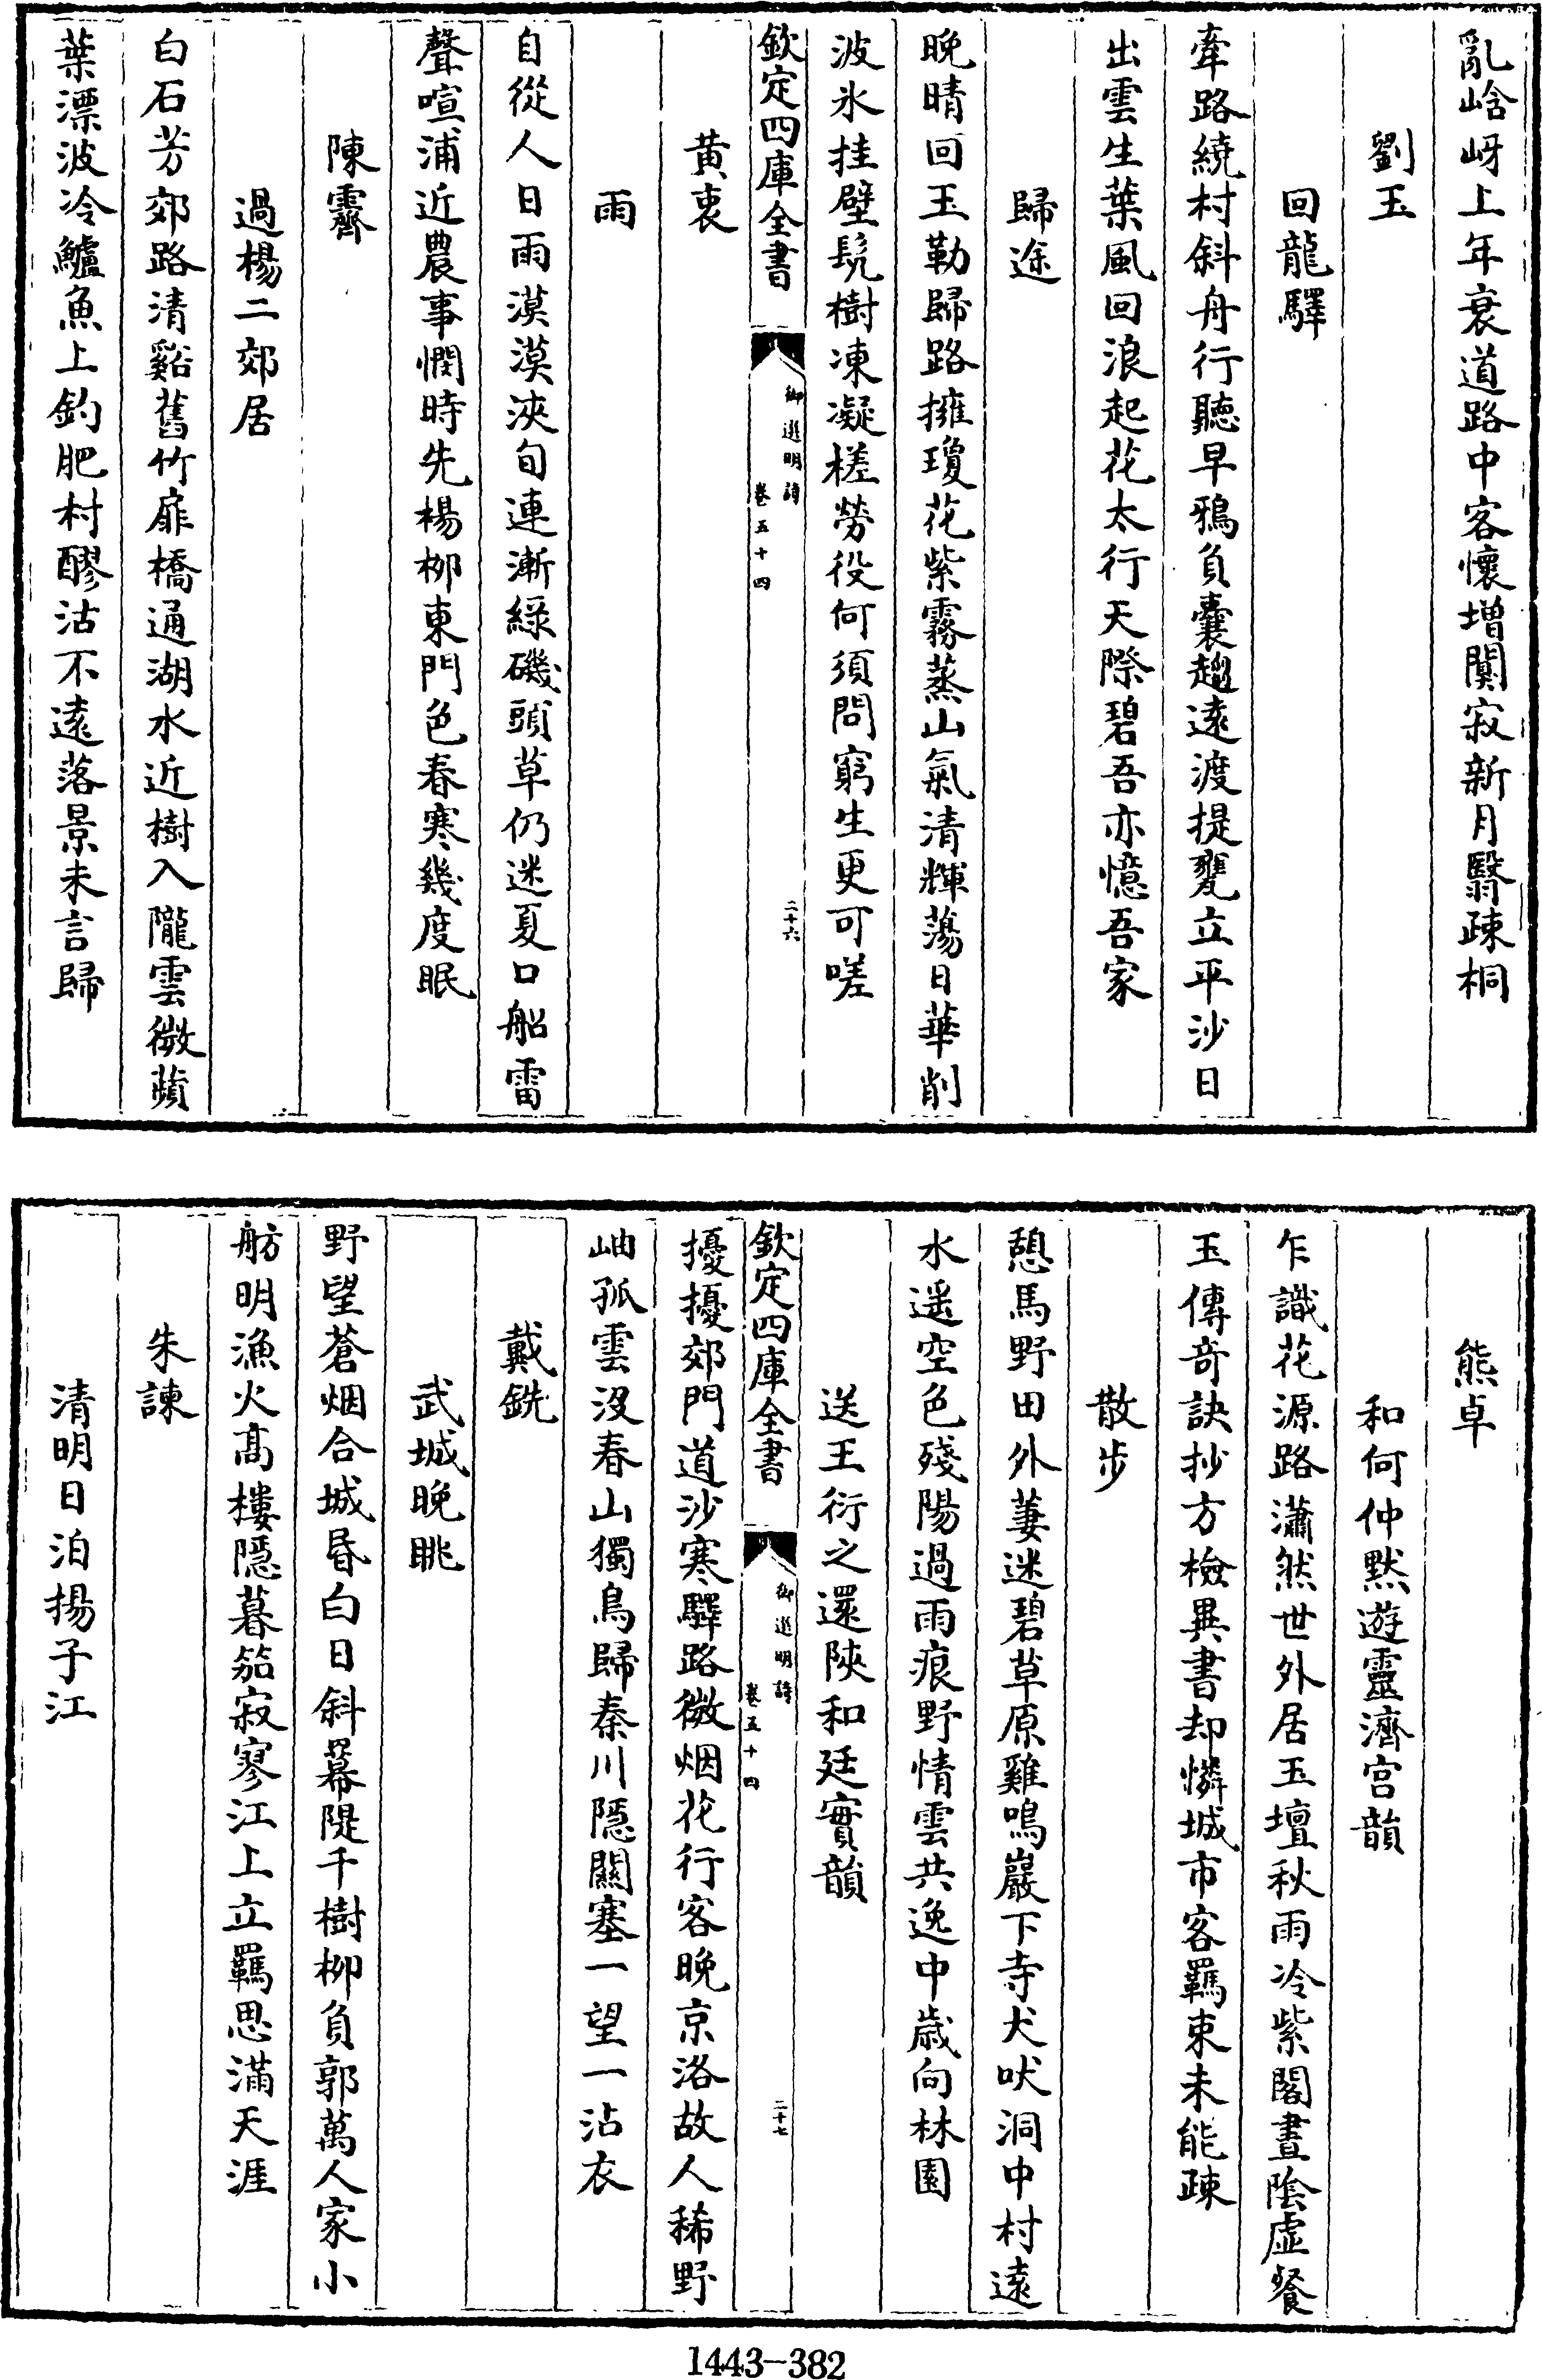 亂峆岈上年衰道路中客懷增闃寂新月翳疎桐
劉玉
回龍驛
牽路繞村斜舟行聽早鴉負囊趨遠渡提甕立平沙日
出雲生葉風回浪起花太行天際碧吾亦憶吾家
歸途
晚晴回玉勒歸路擁瓊花紫霧蒸山氣清輝蕩日華削
波氷挂壁髠樹凍凝槎勞役何須問窮生更可嗟
欽定四庫全書
御選明詩
卷五十四
二十六
黄衷
雨
自從人日雨漠漠浹旬連漸綠磯頭草仍迷夏口船雷
聲喧浦近農事憫時先楊栁東門色春寒幾度眠
陳霽
過楊二郊居
白石芳郊路清谿舊竹扉橋通湖水近樹入隴雲微蘋
葉漂波冷鱸魚上釣肥村醪沽不遠落景未言歸
熊卓
和何仲黙遊靈濟宫韻
乍識花源路瀟然世外居玉壇秋雨冷紫閣晝陰虚餐
玉傳竒訣抄方檢異書却憐城市客羈束未能疎
散步
憇馬野田外萋迷碧草原雞鳴巖下寺犬吠洞中村遠
水遥空色殘陽過雨痕野情雲共逸中歲向林園
送王衍之還陜和廷實韻
欽定四庫全書
御選明詩
卷五十四
二十七
擾擾郊門道沙寒驛路微烟花行客晚京洛故人稀野
岫孤雲沒春山獨鳥歸秦川隱關塞一望一沾衣
戴銑
武城晚眺
野望蒼烟合城昏白日斜幕隄千樹栁負郭萬人家小
舫明漁火髙樓隱暮笳寂寥江上立羈思滿天涯
朱諫
清明日泊揚子江
1443-382